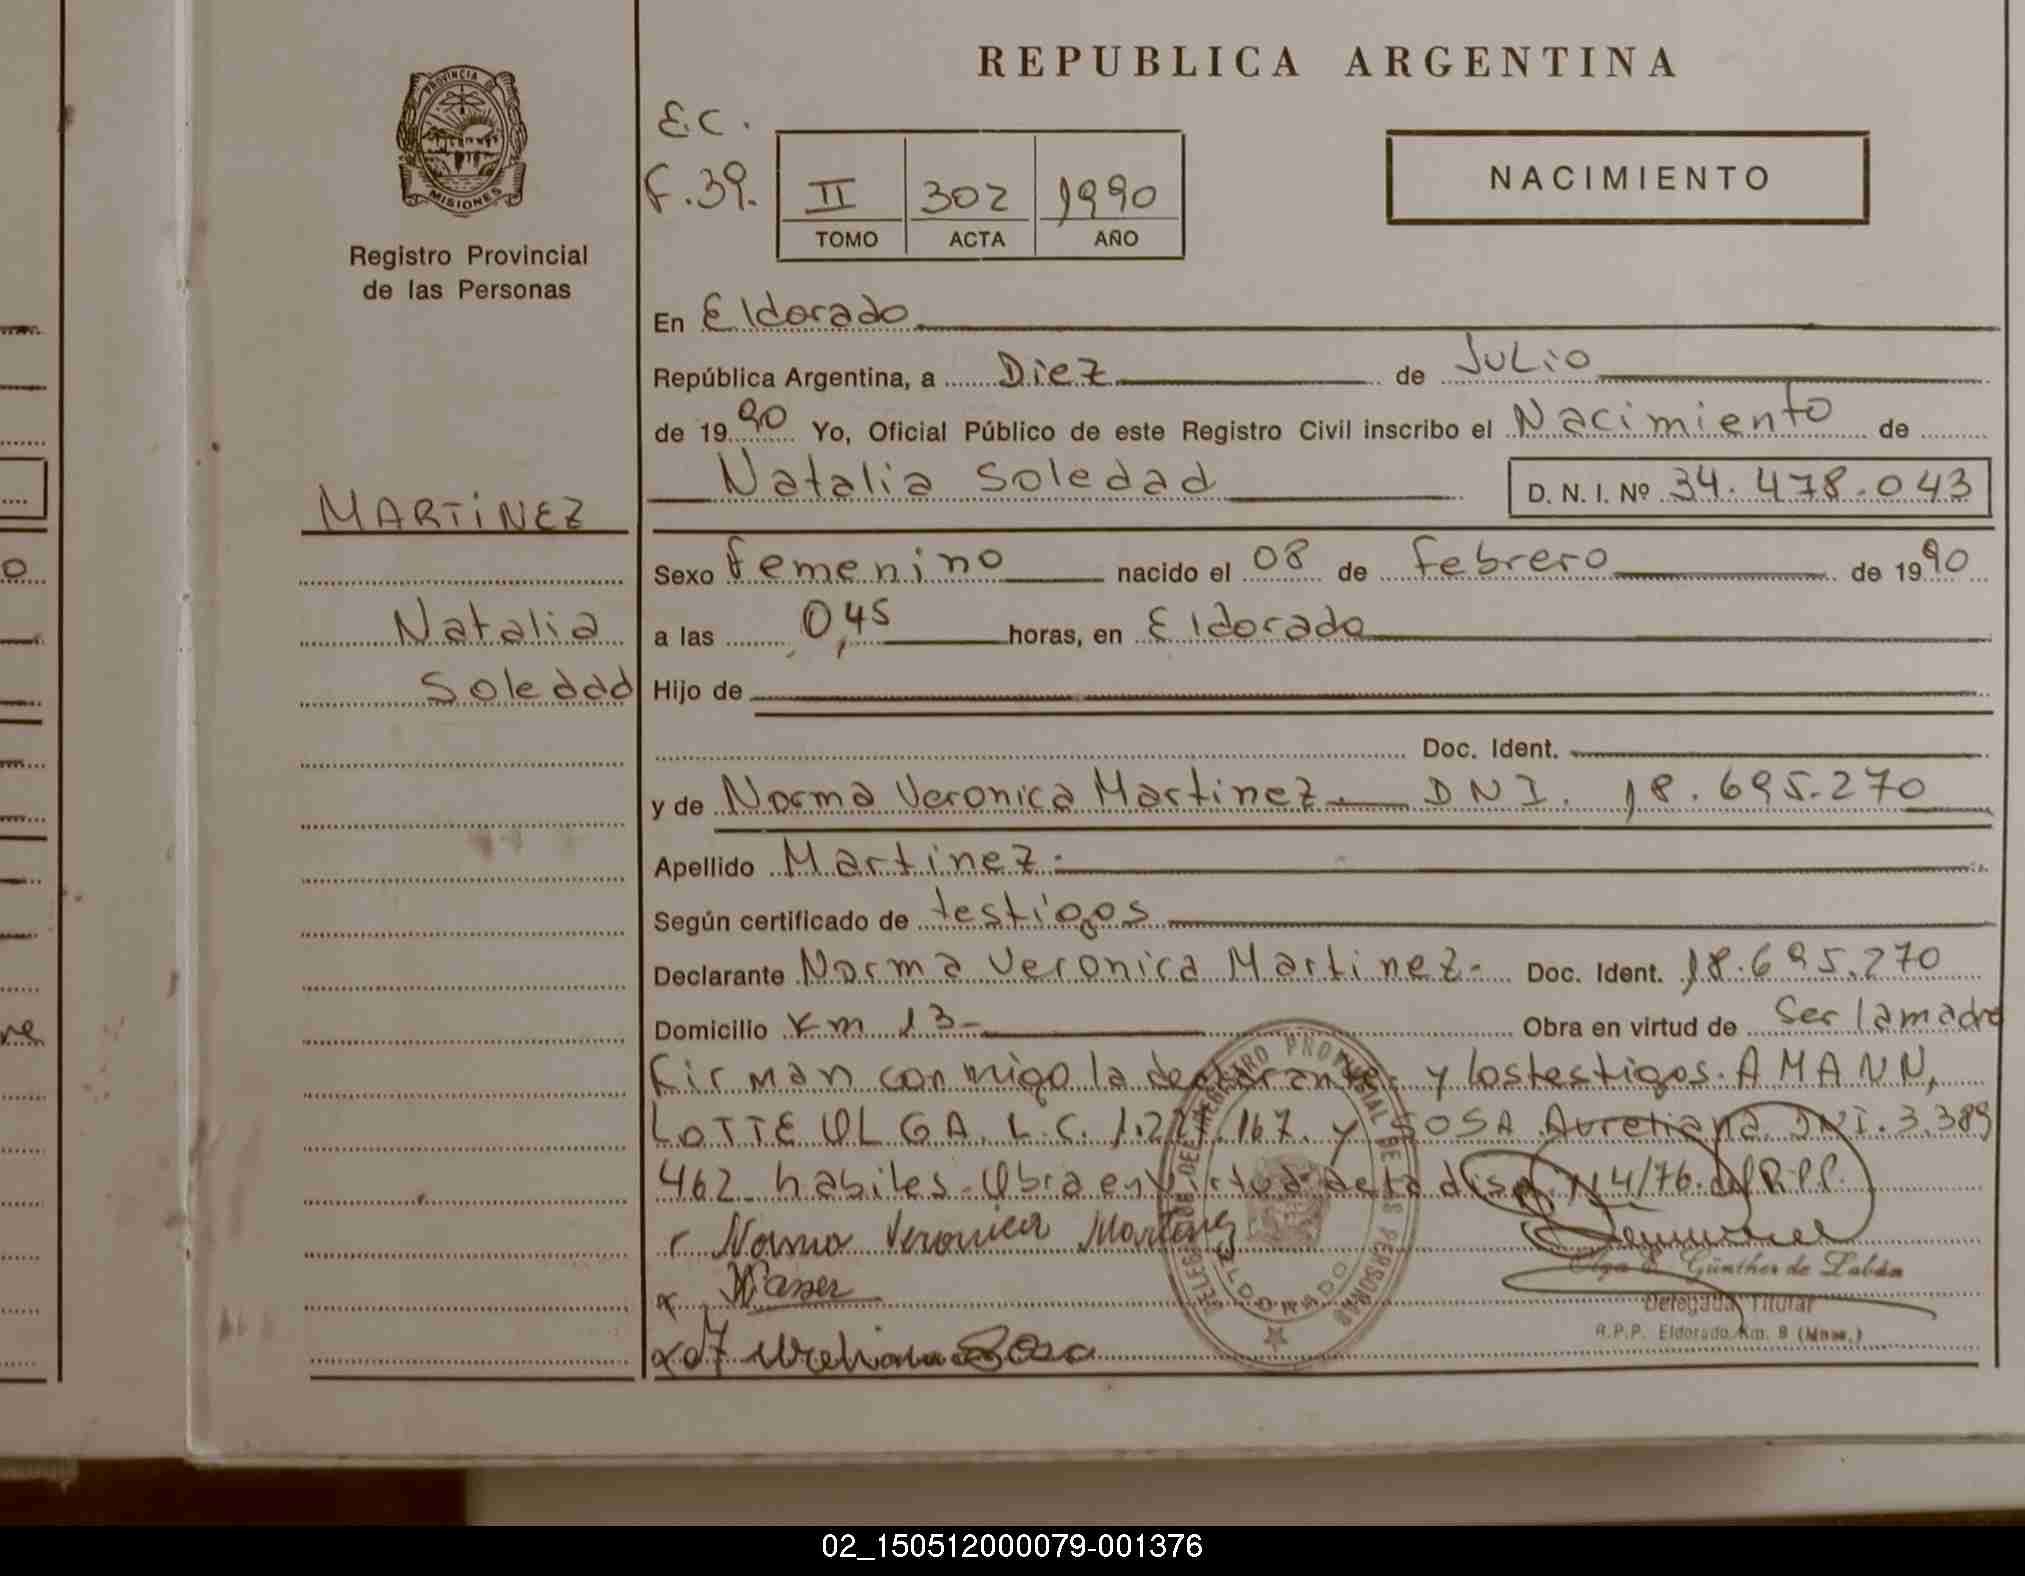 REPUBLICA ARGENTINA
PROVINCIA DE
MISIONES
Registro Provincial
de las Personas
E.C.
F.39.
II 302 1990
TOMO ACTA AÑO
NACIMIENTO
En Eldorado
República Argentina, a Diez de Julio
de 1990 Yo, Oficial Público de este Registro Civil inscribo el Nacimiento de
Natalia Soledad D. N. I. Nº 34.478.043
MARTINEZ
Natalia
Soledad
Sexo femenino nacido el 08 de febrero de 1990
a las 0,45 horas, en Eldorado
Hijo de
Doc. Ident.
y de Norma Veronica Martinez DNI. 18.695.270
Apellido Martinez.
Según certificado de testigos
Declarante Norma Veronica Martinez- Doc. Ident. 18.695.270
Domicilio Km 13- Obra en virtud de Ser la madre
Firman conmigo la declarante y los testigos. AMANN,
LOTTE OLGA. L.C. 1.227.167. y SOSA Aureliana DNI. 3.389
462 habiles. Obra en virtud de la disp. N 4/76. del R.P.P.
Norma Veronica Martinez
Aureliana Sosa
DELEGACION DEL REGISTRO PROVINCIAL DE LAS PERSONAS
ELDORADO
Olga E. Günther de Labán
Delegada Titular
R.P.P. Eldorado Km. 9 (Mnes.)
02_150512000079-001376